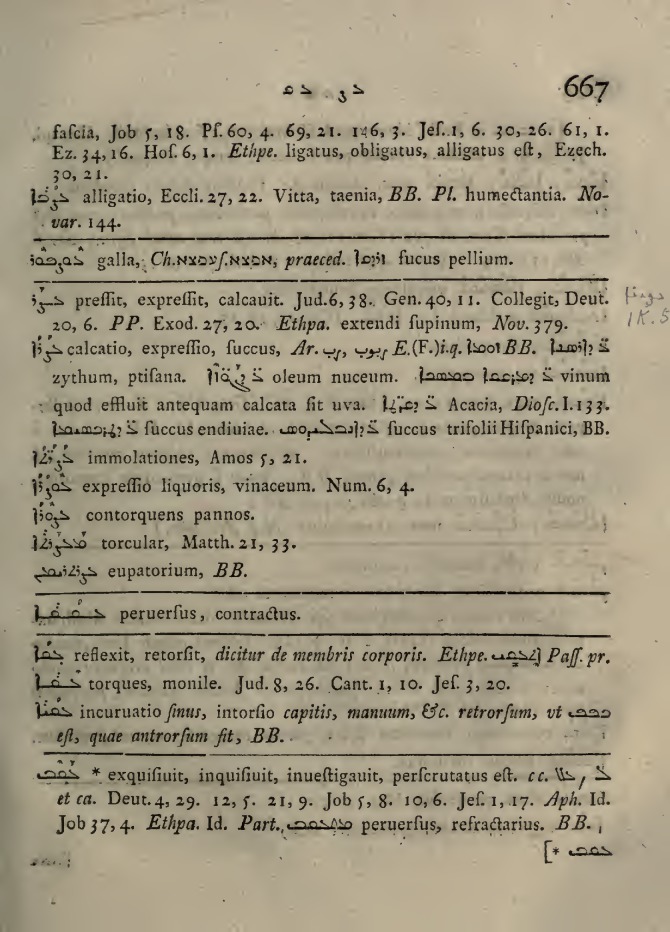 667
fascia, Job 5, 18. Ps. 60, 4. 69, 21. 146, 3. Jes. 1, 6. 30, 26. 61, 1.
Ez. 34, 16. Hos. 6, 1. Ethpe. ligatus, obligatus, alligatus est, Ezech.
30, 21.
alligatio, Eccli. 27, 22. Vitta, taenia, BB. Pl. humectantia. No-
var. 144.
galla, Ch. praeced. fucus pellium.
ܥܨܪ pressit, expressit, calcauit. Jud. 6, 38. Gen. 40, 11. Collegit, Deut.
20, 6. PP. Exod. 27, 20. Ethpa. extendi supinum, Nov. 379.
calcatio, expressio, succus, Ar. E. (F.) i. q. BB.
zythum, ptisana. oleum nuceum. vinum
quod effluit antequam calcata sit uva. Acacia, Diosc. I. 133.
succus endiuiae. succus trifolii Hispanici, BB.
immolationes, Amos 5, 21.
expressio liquoris, vinaceum. Num. 6, 4.
contorquens pannos.
torcular, Matth. 21, 33.
eupatorium, BB.
peruersus, contractus.
reflexit, retorsit, dicitur de membris corporis. Ethpe. Pass. pr.
torques, monile. Jud. 8, 26. Cant. 1, 10. Jes. 3, 20.
incuruatio sinus, intorsio capitis, manuum, &c. retrorsum, vt
est, quae antrorsum fit, BB.
ܥܩܒ * exquisiuit, inquisiuit, inuestigauit, perscrutatus est. cc.
et ca. Deut. 4, 29. 12, 5. 21, 9. Job 5, 8. 10, 6. Jes. 1, 17. Aph. Id.
Job 37, 4. Ethpa. Id. Part. peruersus, refractarius. BB.
[* ܥܩܒ